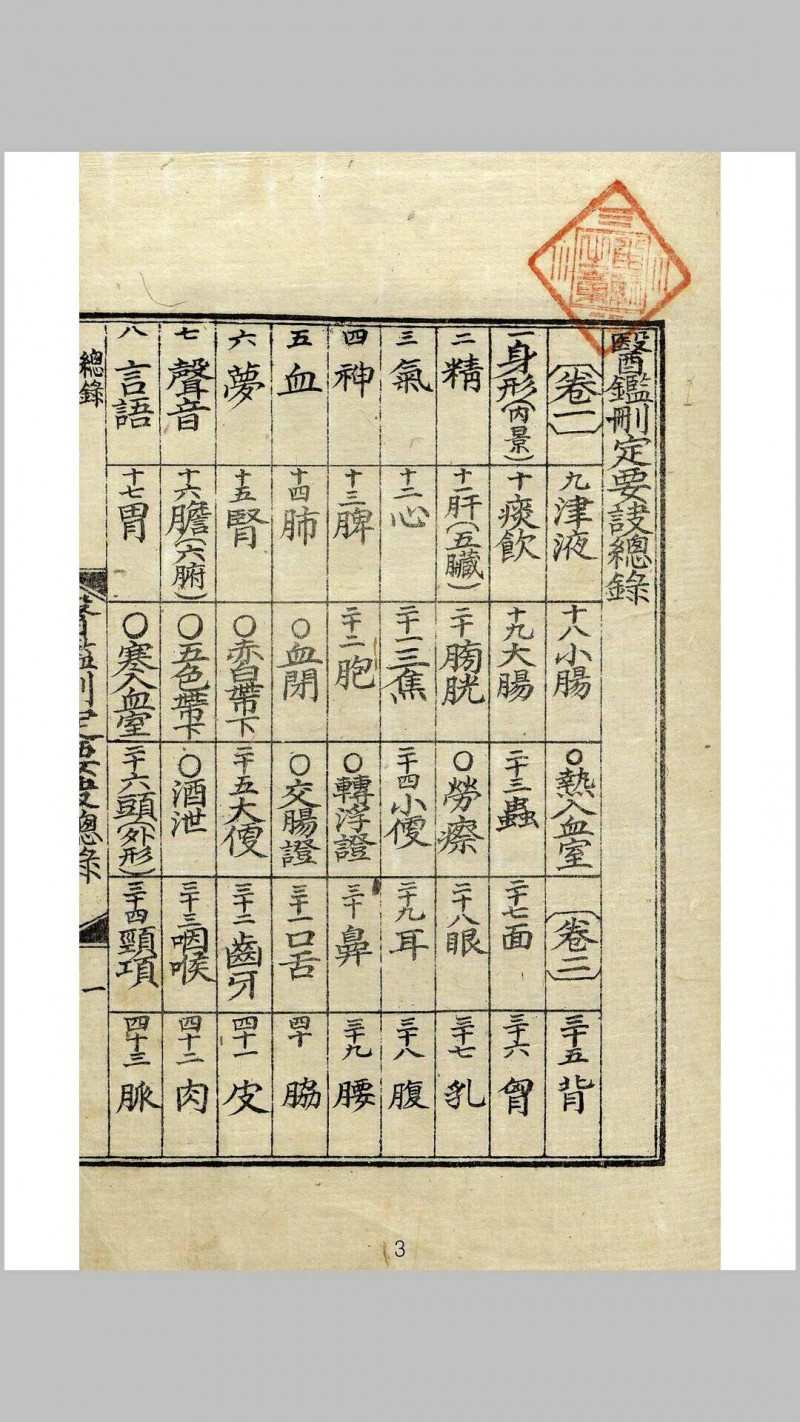 醫鑑刪定要訣總錄
(卷一)
一 身形(內景)
二 精
三 氣
四 神
五 血
六 夢
七 聲音
八 言語
九 津液
十 痰飲
十一 肝(五臟)
十二 心
十三 脾
十四 肺
十五 腎
十六 膽(六腑)
十七 胃
十八 小腸
十九 大腸
二十 膀胱
二十一 三焦
二十二 胞
○血閉
○赤白帶下
○五色帶下
○寒入血室
○熱入血室
二十三 蟲
○勞瘵
二十四 小便
○轉浮證
○交腸證
二十五 大便
○酒泄
二十六 頭(外形)
(卷二)
二十七 面
二十八 眼
二十九 耳
三十 鼻
三十一 口舌
三十二 齒牙
三十三 咽喉
三十四 頸項
三十五 背
三十六 胷
三十七 乳
三十八 腹
三十九 腰
四十 脇
四十一 皮
四十二 肉
四十三 脈
總錄
一
3